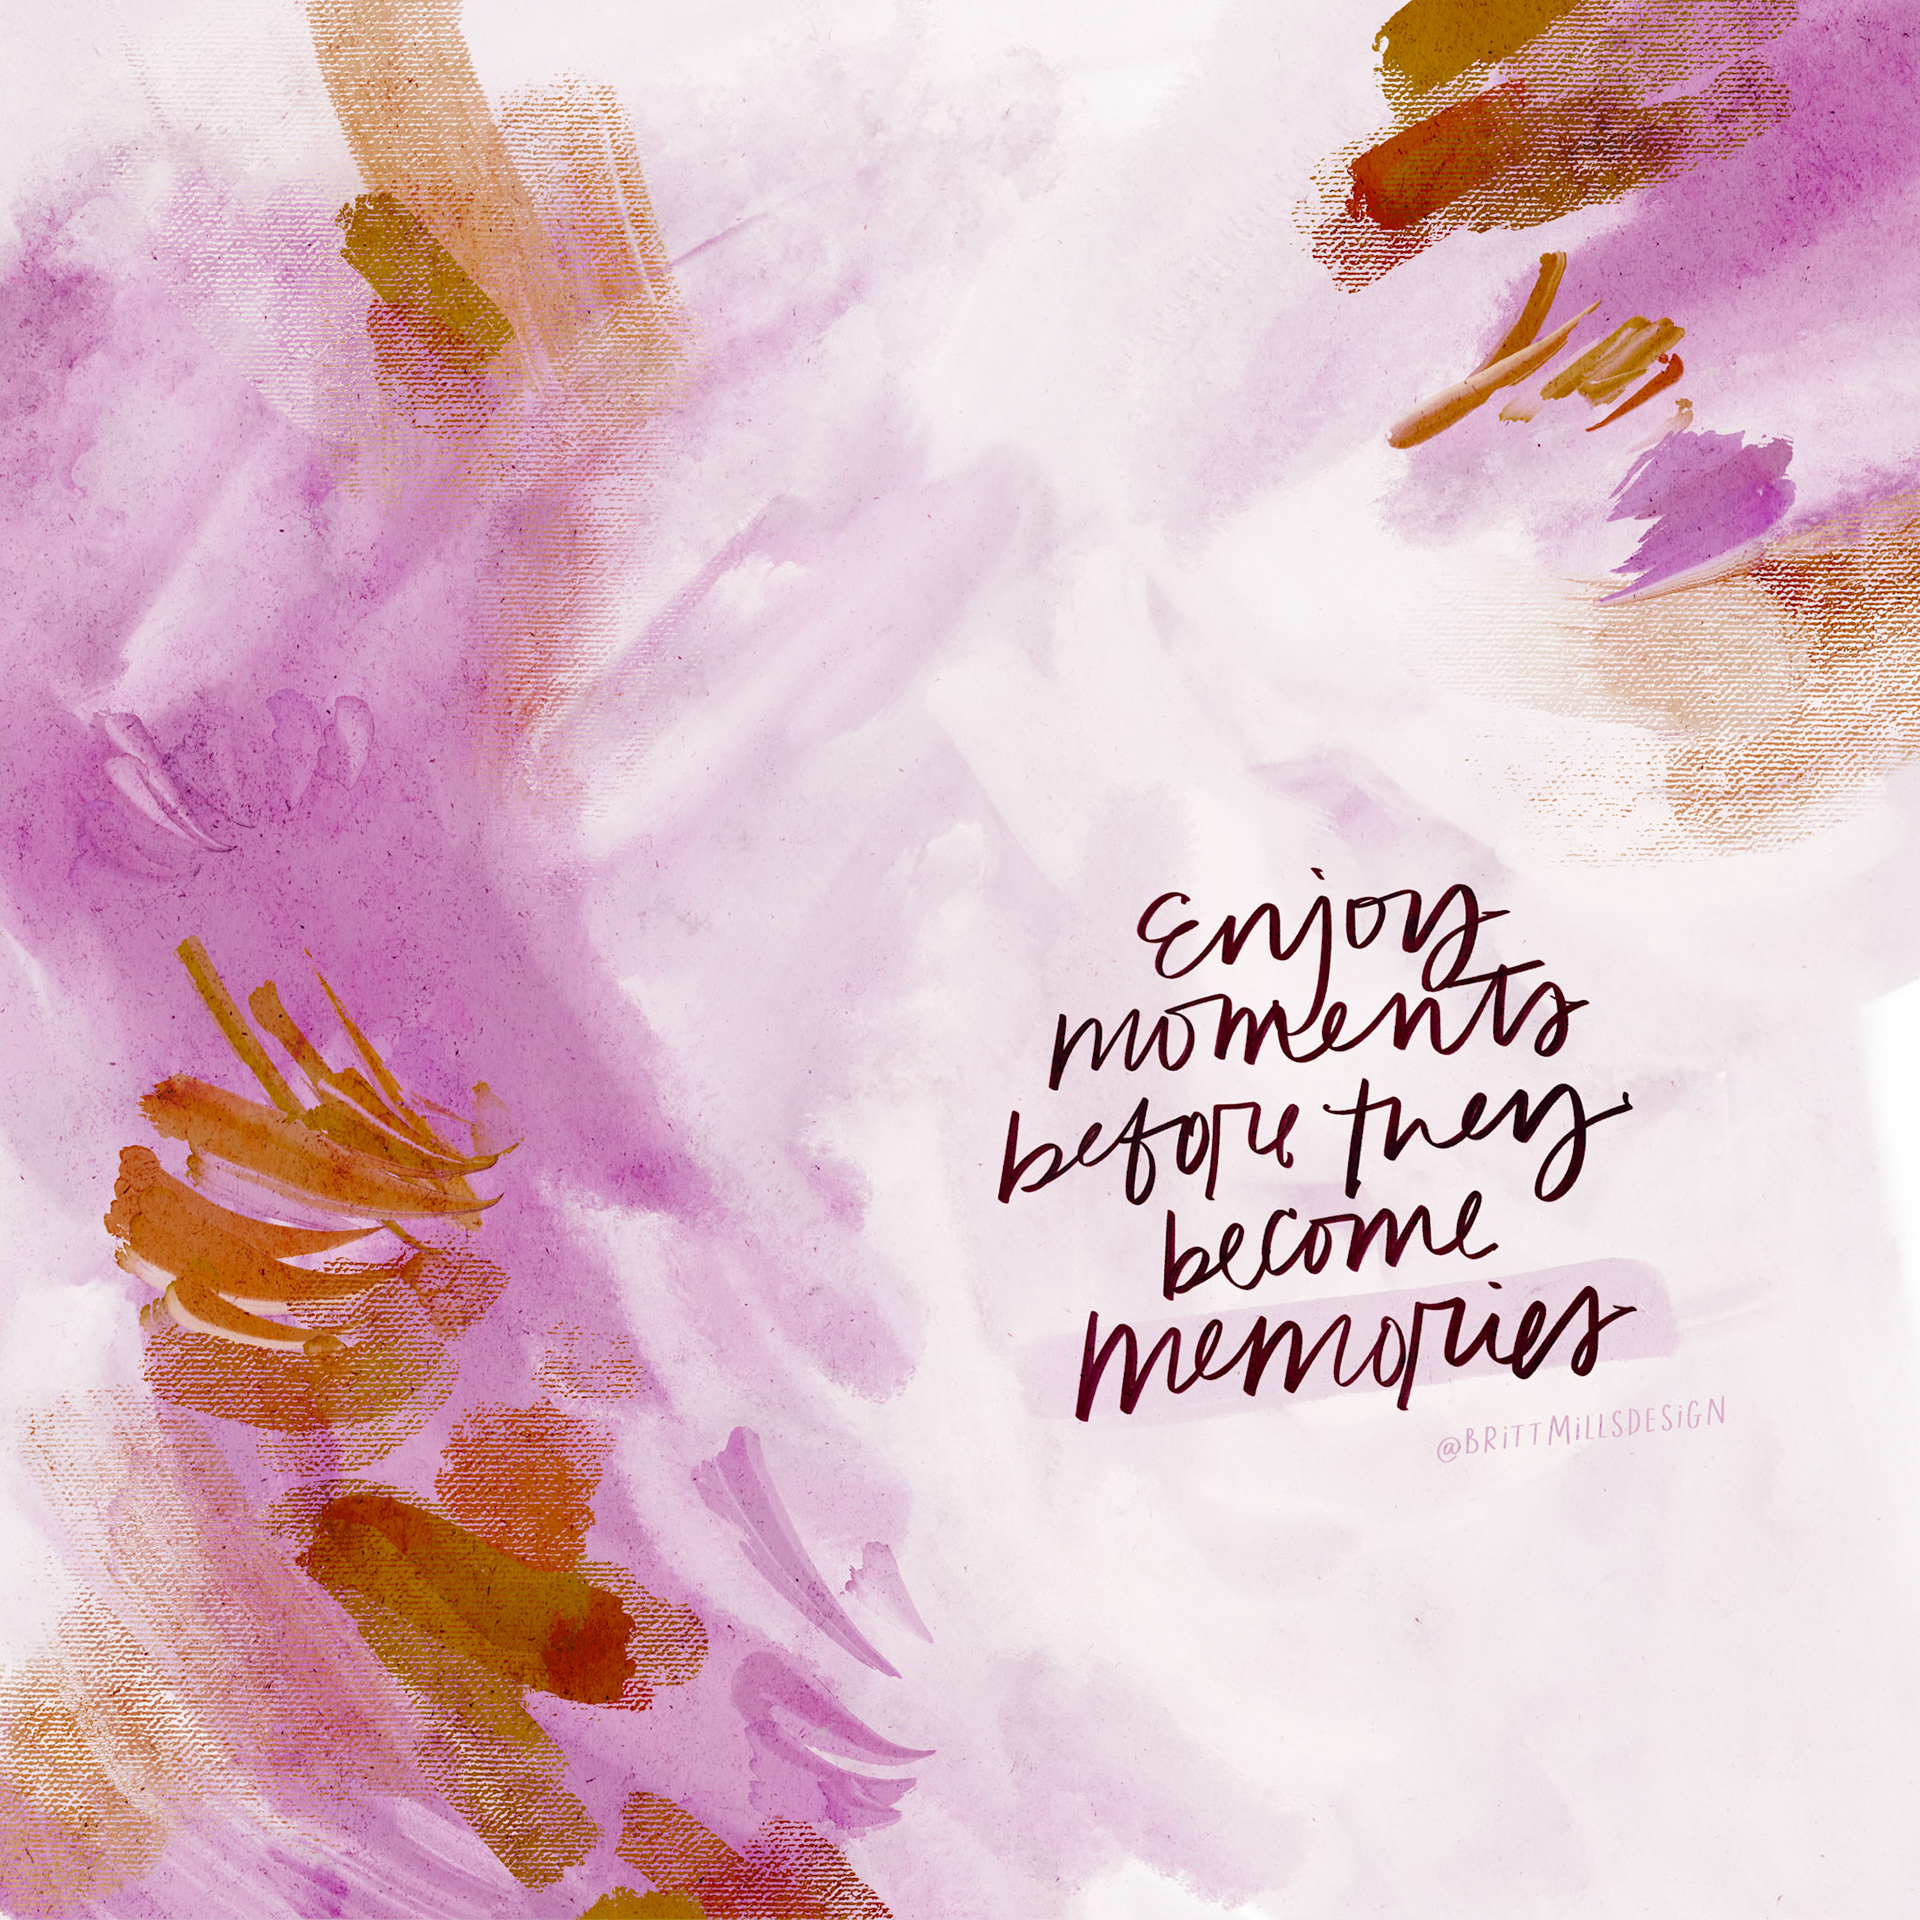 Enjoy
moments
before they
become
memories
@BRiTTMiLLSDESiGN